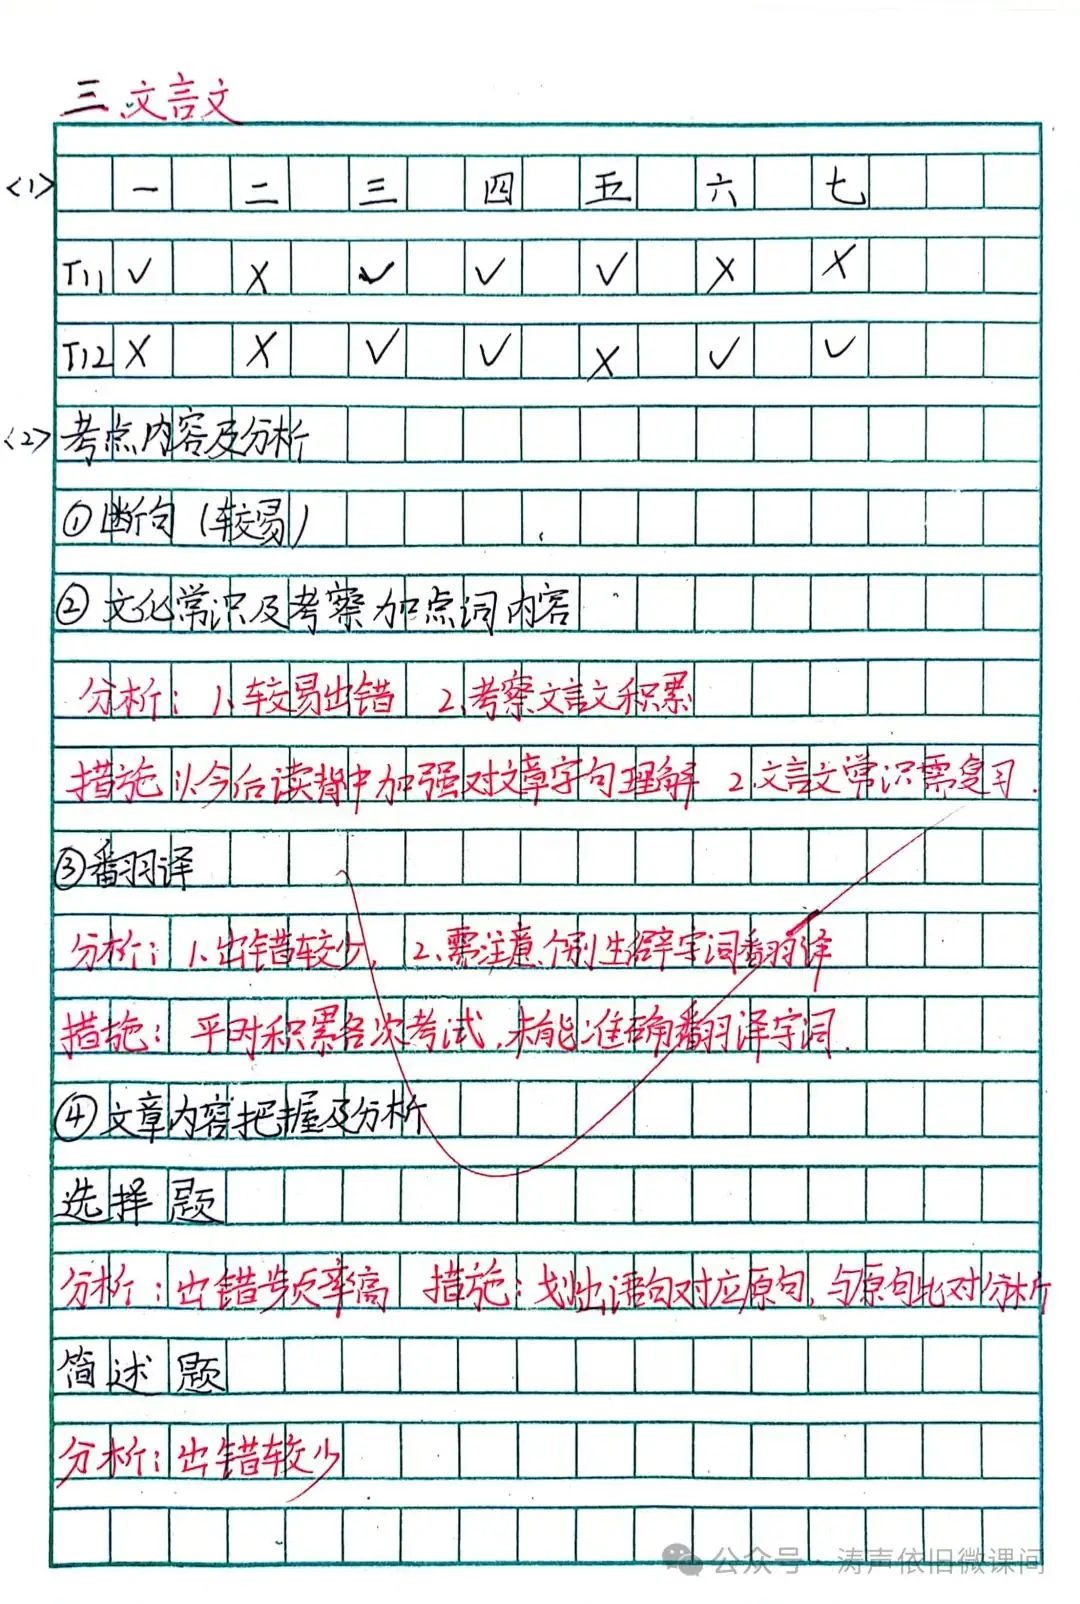 三、文言文
<1> 一 二 三 四 五 六 七
T11 ✓ ✗ ✓ ✓ ✓ ✗ ✗
T12 ✗ ✗ ✓ ✓ ✗ ✓ ✓
<2> 考点内容及分析
①断句(较易)
②文化常识及考察加点词内容
分析：1、较易出错 2、考察文言文积累
措施 1、今后读背中加强对文章字句理解 2、文言文常识需复习.
③翻译
分析：1、出错较少, 2、需注意个别生僻字词翻译
措施：平时积累各次考试,未能准确翻译字词.
④文章内容把握及分析
选择题
分析：出错频率高 措施：划出语句对应原句,与原句比对分析
简述题
分析：出错较少
公众号·涛声依旧微课间